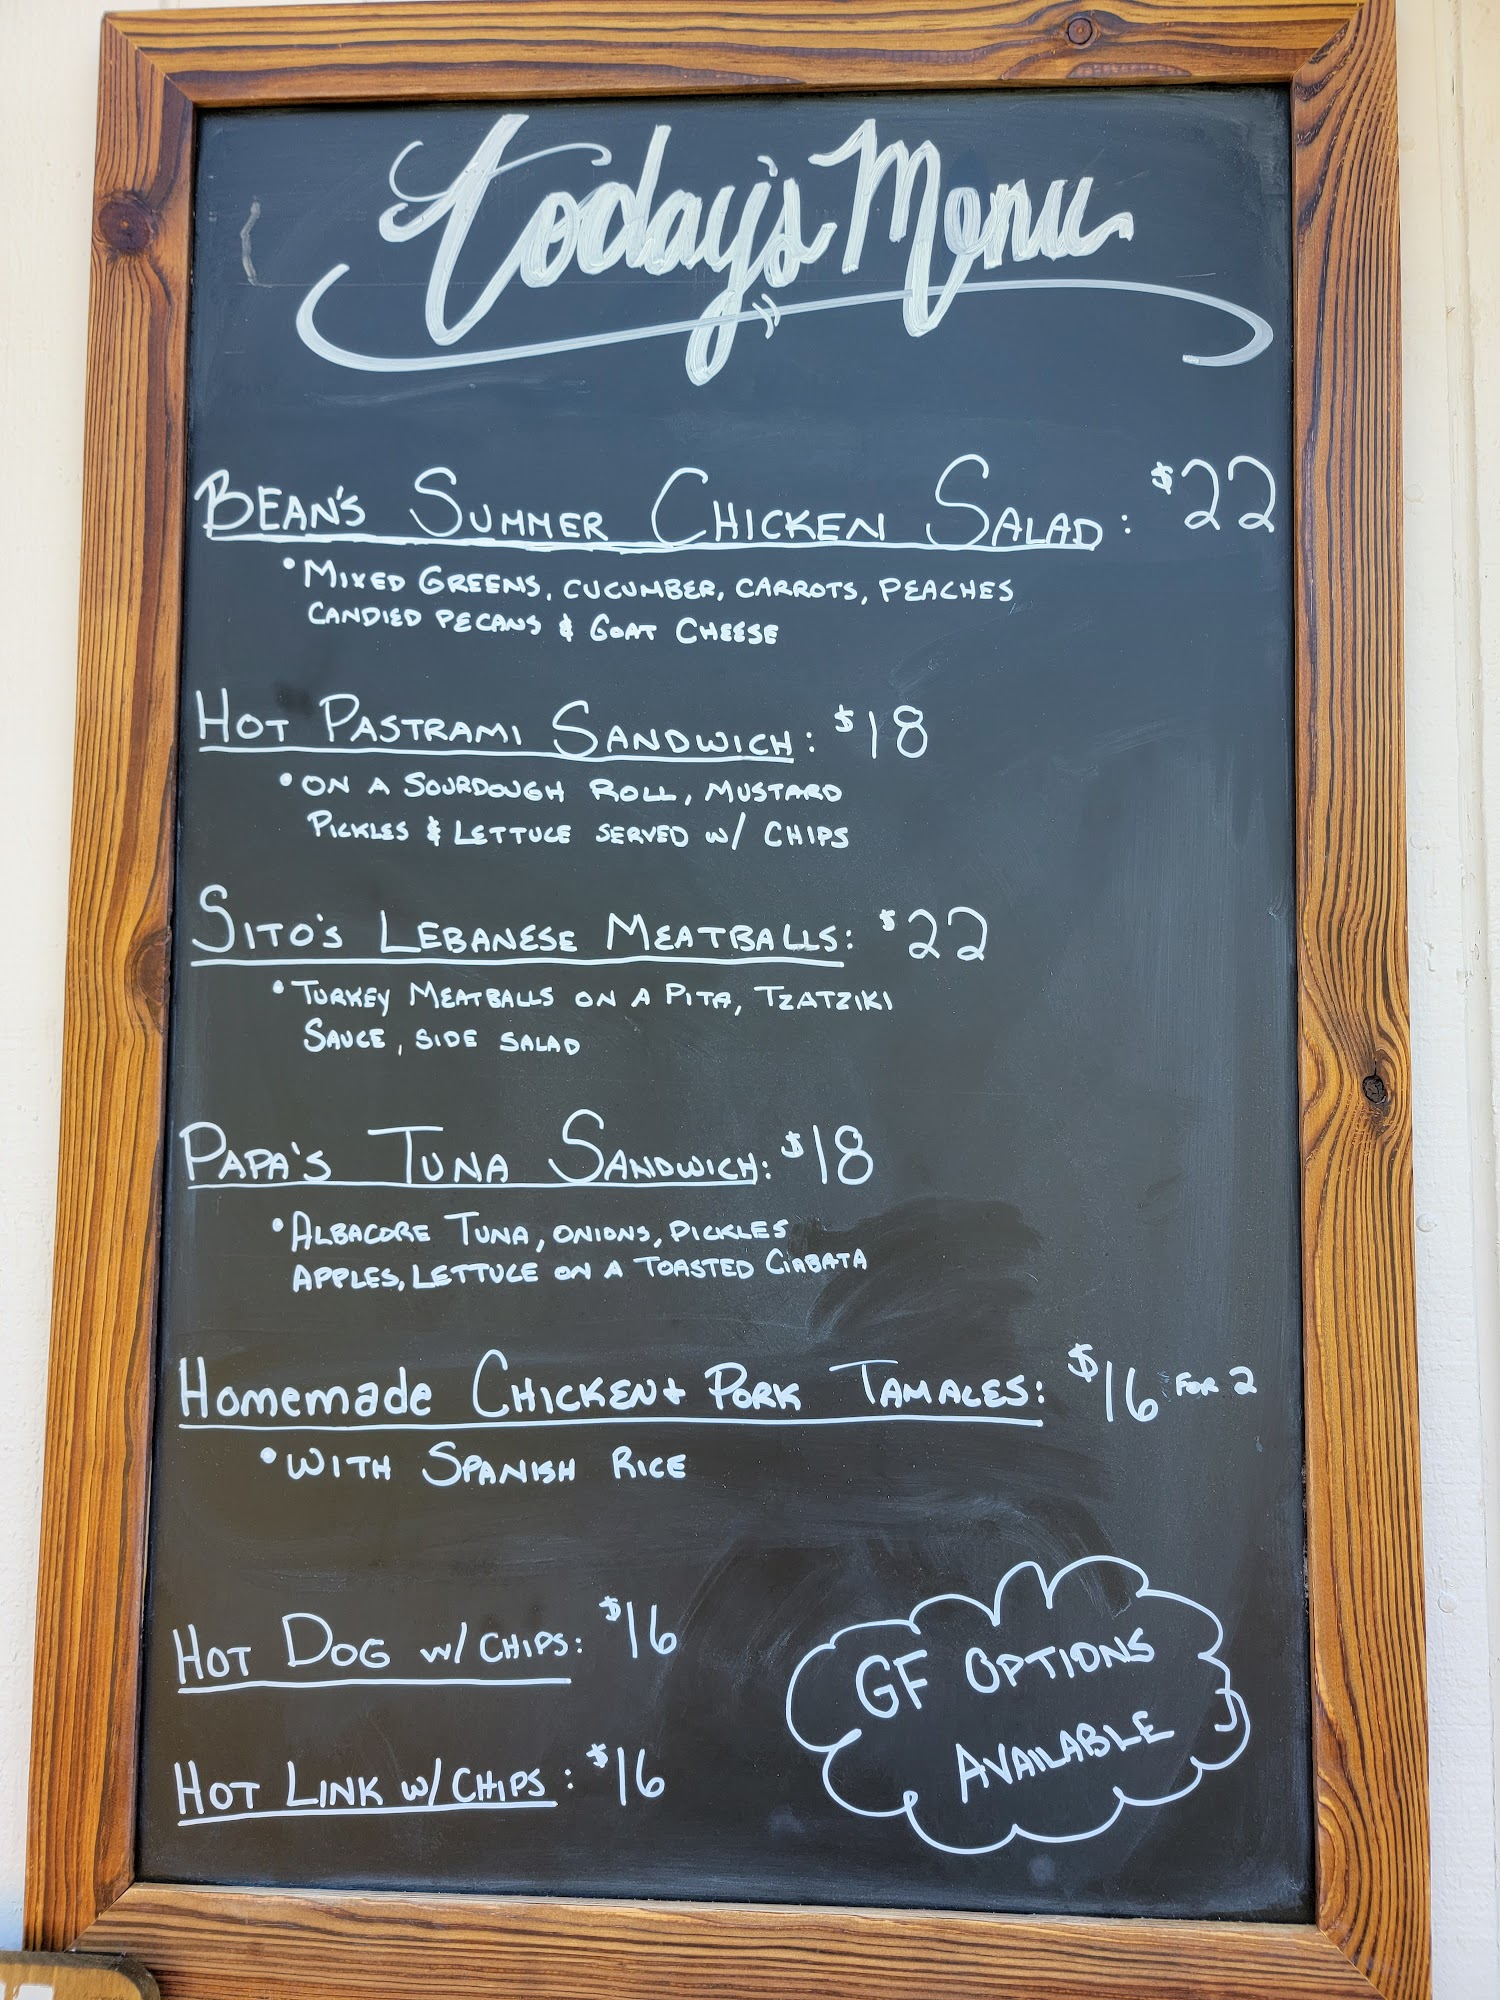 Today's Menu
BEAN'S SUMMER CHICKEN SALAD: $22
• MIXED GREENS, CUCUMBER, CARROTS, PEACHES
CANDIED PECANS & GOAT CHEESE
HOT PASTRAMI SANDWICH: $18
• ON A SOURDOUGH ROLL, MUSTARD
PICKLES & LETTUCE SERVED W/ CHIPS
SITO'S LEBANESE MEATBALLS: $22
• TURKEY MEATBALLS ON A PITA, TZATZIKI
SAUCE, SIDE SALAD
PAPA'S TUNA SANDWICH: $18
• ALBACORE TUNA, ONIONS, PICKLES
APPLES, LETTUCE ON A TOASTED CIABATA
Homemade CHICKEN + PORK TAMALES: $16 FOR 2
• WITH SPANISH RICE
HOT DOG W/ CHIPS: $16
HOT LINK W/ CHIPS: $16
GF OPTIONS
AVAILABLE